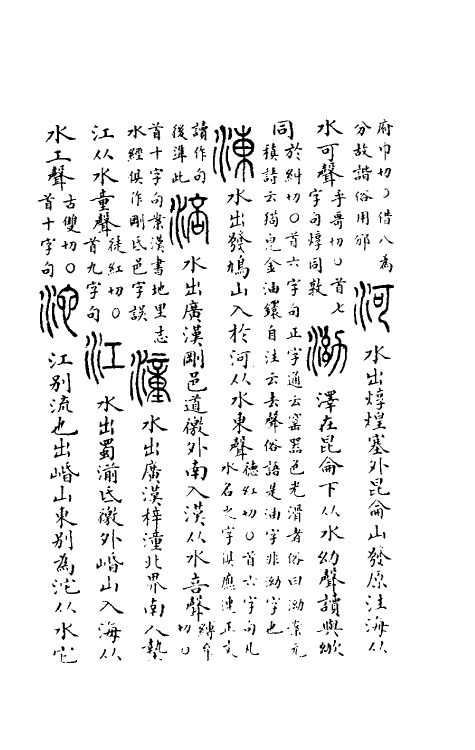 府巾切〇借八為
分故諧俗用邠
河水出焞煌塞外昆侖山發原注海从
水可聲
乎哥切〇首七
字句焞同敦
泑澤在昆侖下从水幼聲讀與黝
同
於糾切〇首六字句正字通云窰器色光滑者俗曰泑案元
稹詩云猧兒金油鐶自注云去聲俗語是油字非泑字也
涷水出發鳩山入於河从水東聲
德紅切〇首六字句凡
水名之字俱應連正文
讀作句
後準此
涪水出廣漢剛邑道徼外南入漢从水咅聲
縛牟
切〇
首十字句案漢書地里志
水經俱作剛氐邑字誤
潼水出廣漢梓潼北界南入墊
江从水童聲
徒紅切〇
首九字句
江水出蜀湔氐徼外崏山入海从
水工聲
古雙切〇
首十字句
沱江別流也出崏山東別為沱从水它